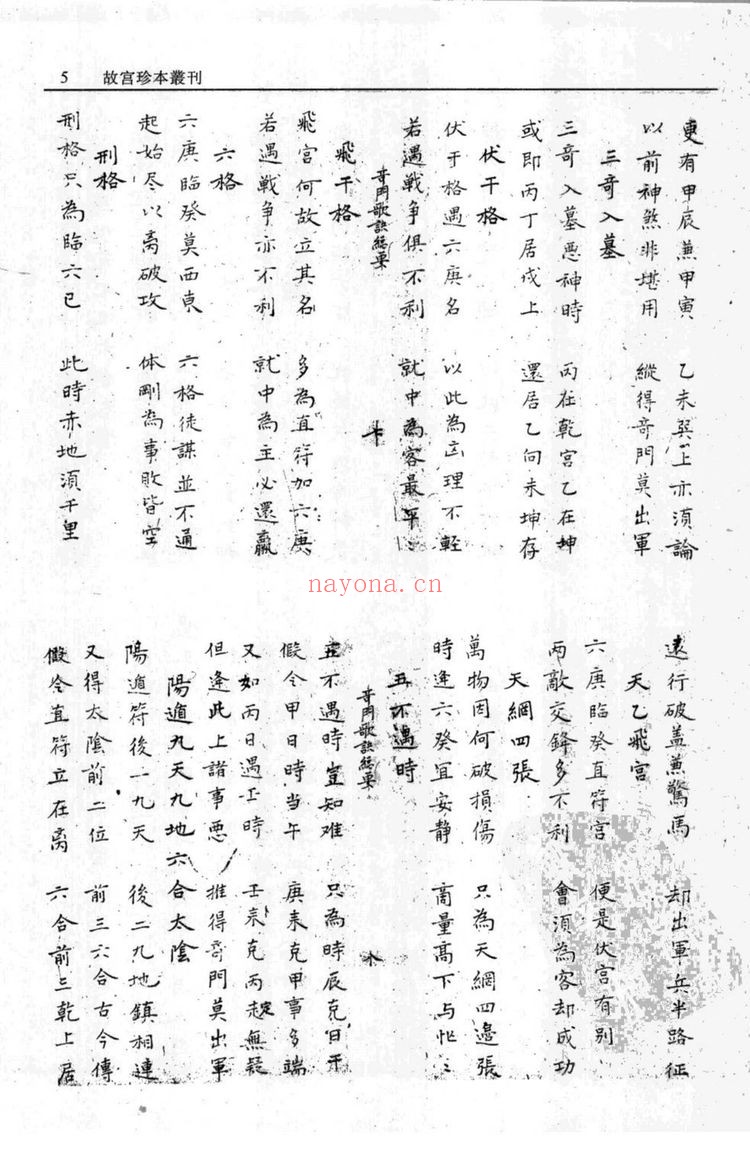 5 故宮珍本叢刊
更有甲辰兼甲寅 乙未巽上亦須論
以前神煞非堪用 縱得奇門莫出軍
三奇入墓
三奇入墓悪神時 丙在乾宮乙在坤
或即丙丁居戌上 還居乙向未坤存
伏干格
伏于格遇六庚名 以此為凶理不輕
若遇戰争俱不利 就中為客最
奇門歌訣總栗
飛干格
飛宮何故立其名 多為直符加六庚
若遇戦争亦不利 就中為主必還贏
六格
六庚臨癸莫西東 六格徒謀並不通
起始尽以离破攻 体剛為事敗皆空
刑格
刑格只為臨六已 此時赤地須千里
遠行破盖兼驚馬 却出軍兵半路征
天乙飛宮
六庚臨癸直符宮 便是伏宮有別
兩敵交鋒多不利 會須為客却成功
天網四張
萬物因何破損傷 只為天網四邊張
時逢六癸宜安静 商量高下与
五不遇時
奇門歌訣總栗
五不遇時豈知难 只為時辰克日干
假令甲日時當午 庚来克甲事多端
又如丙日遇壬時 壬来克丙定無疑
但逢此上諸事悪 推得奇門莫出軍
陽遁九天九地六合太陰
陽遁符後一九天 後二九地鎮相連
又得太陰前二位 前三六合古今傳
假令直符立在离 六合前三乾上居
nayona.cn